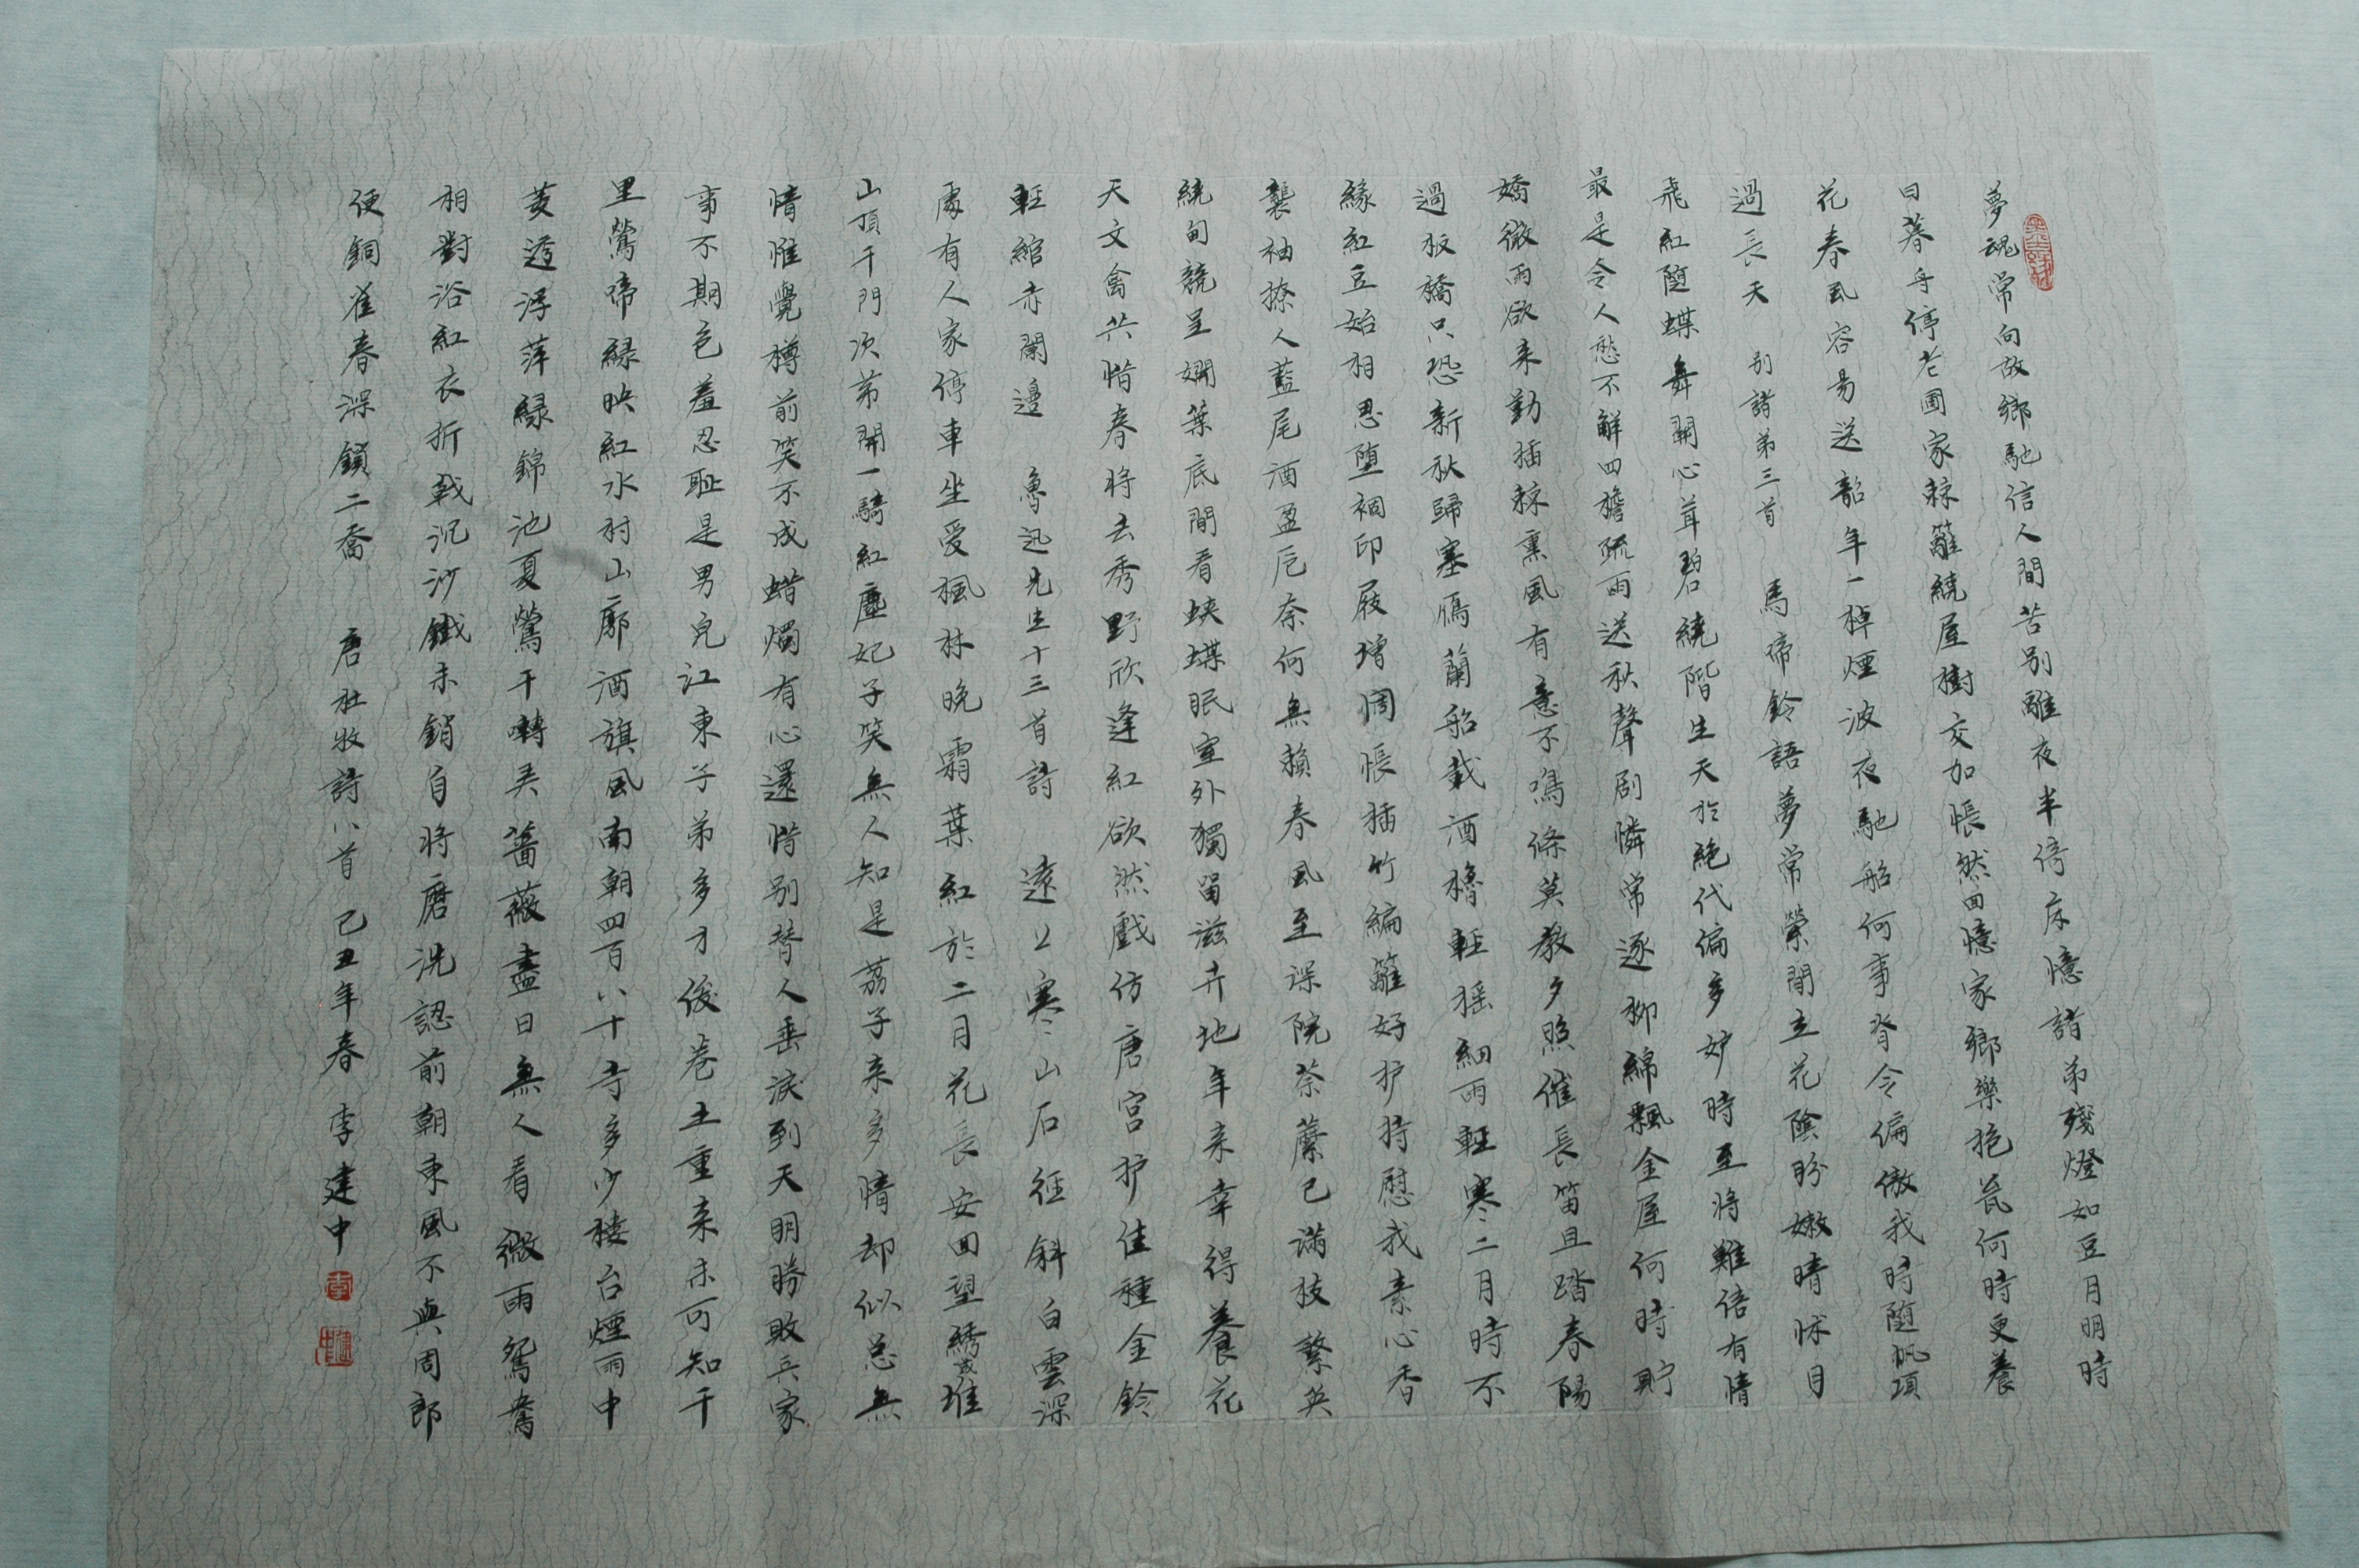 夢魂常向故鄉馳信人間苦别離夜半倚床憶諸弟殘燈如豆月明時
日暮舟停老圃家棘籬繞屋樹交加悵然回憶家鄉樂抱瓮何時更養
花春風容易送韶年一棹煙波夜馳船何事脊令偏傲我時随帆頂
過長天 别諸弟三首 馬啼鈴語夢常縈間立花陰盼嫩晴怵目
飛紅随蝶舞開心茸碧繞階生天於絶代偏多妒時至將難倍有情
最是令人愁不解四檐疏雨送秋聲剧憐常逐柳綿飄金屋何時貯
嬌微雨欲来勤插棘熏風有意不鳴條莫教夕照催長笛且踏春陽
過板橋只恐新秋歸塞雁蘭船載酒櫓輕摇細雨輕寒二月時不
緣紅豆始相思堕裀印屐增惆悵插竹編籬好护持慰我素心香
襲袖撩人藍尾酒盈卮奈何無賴春風至深院荼蘼已满枝繁英
繞甸競呈嫻葉底間看蛱蝶眠室外獨留滋卉地年来幸得養花
天文禽共惜春將去秀野欣逢紅欲然戲仿唐宫护佳種金鈴
輕綰赤闌邊 魯迅先生十三首詩 遠上寒山石徑斜白雲深
處有人家停車坐愛楓林晚霜葉紅於二月花長安回望綉成堆
山頂千門次第開一騎紅塵妃子笑無人知是荔子来多情却似总無
情惟覺樽前笑不成蜡燭有心還惜别替人垂淚到天明勝敗兵家
事不期包羞忍耻是男兒江東子弟多才俊卷土重来未可知千
里鶯啼緑映紅水村山廓酒旗風南朝四百八十寺多少楼台煙雨中
菱透浮萍緑錦池夏鶯千囀弄薔薇盡日無人看微雨鴛鴦
相對浴紅衣折戟沉沙鐵未銷自將磨洗認前朝東風不與周郎
便銅雀春深鎖二喬 唐杜牧詩八首 己丑年春 李建中